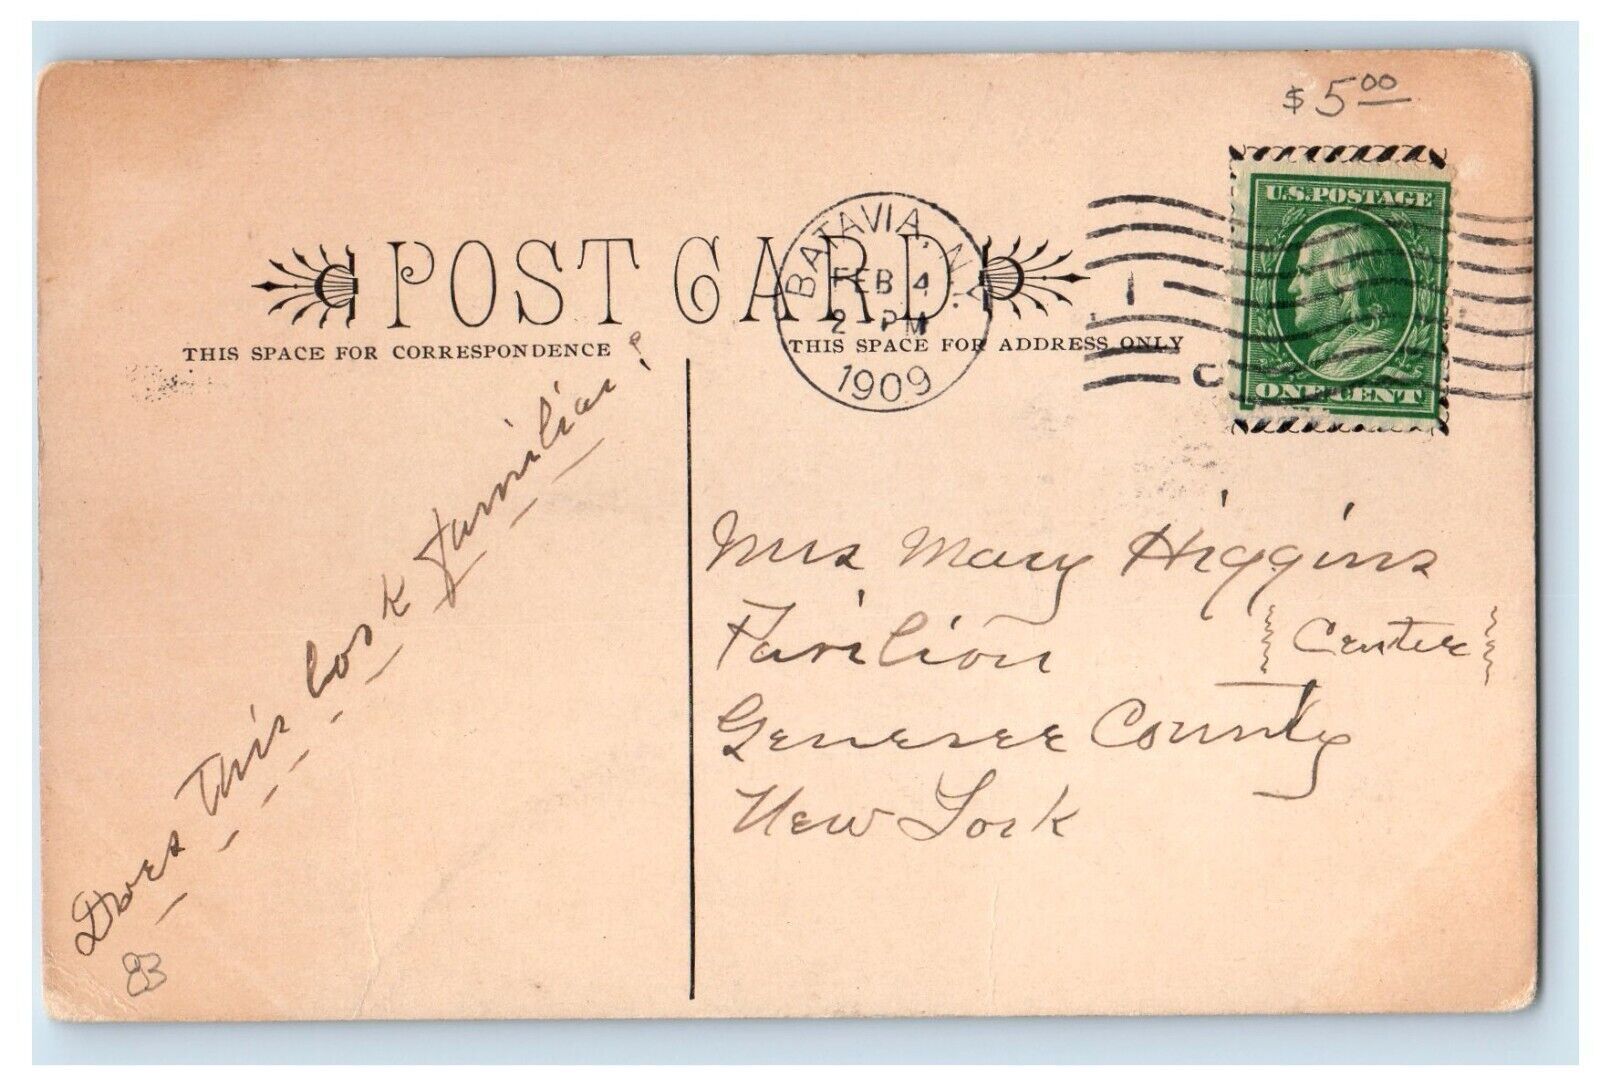 $5.00
U.S. POSTAGE
BATAVIA, N.Y.
FEB 4
2 - PM
1909
ONE CENT
POST CARD
THIS SPACE FOR CORRESPONDENCE
THIS SPACE FOR ADDRESS ONLY
Does This look familiar?
83
Mrs Mary Higgins
Pavilion { Center }
Genesee County
New York